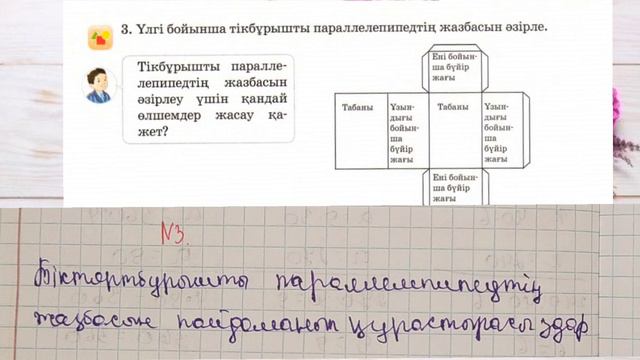 3. Үлгі бойынша тікбұрышты параллелепипедтің жазбасын әзірле.
Тікбұрышты паралле-
лепипедтің жазбасын
әзірлеу үшін қандай
өлшемдер жасау қа-
жет?
Ені бойын-
ша бүйір
жағы
Табаны
Ұзын-
дығы
бойын-
ша
бүйір
жағы
Табаны
Ұзын-
дығы
бойын-
ша
бүйір
жағы
Ені бойын-
ша бүйір
жағы
N3.
параллелепипедтің
жазбасын пайдаланып құрастырасыздар